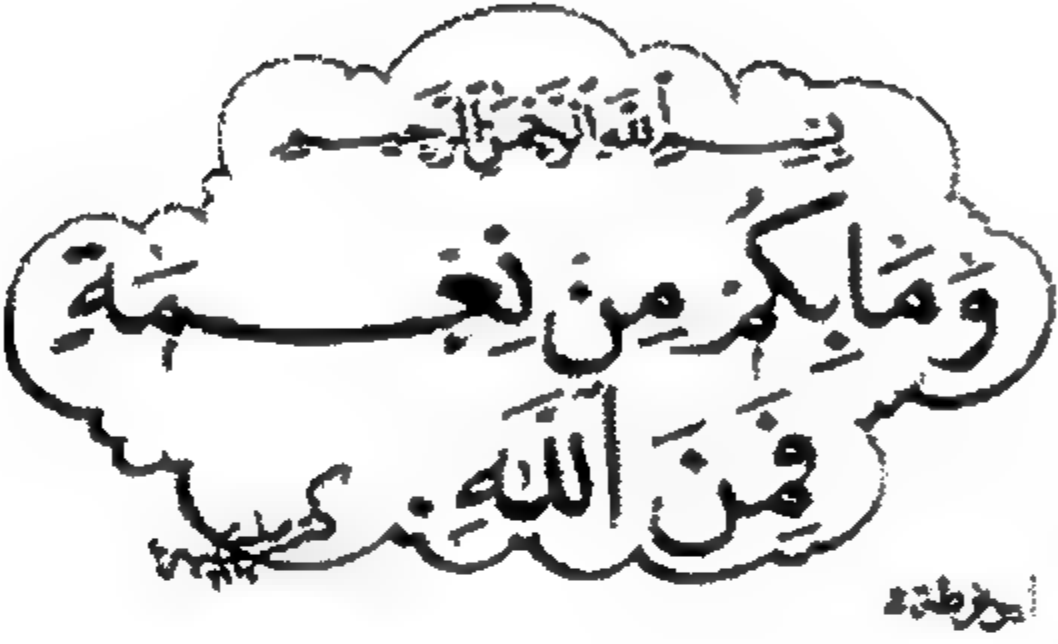 بِسْمِ اللَّهِ الرَّحْمَنِ الرَّحِيمِ
وَمَا بِكُمْ مِنْ نِعْمَةٍ
فَمِنَ اللَّهِ